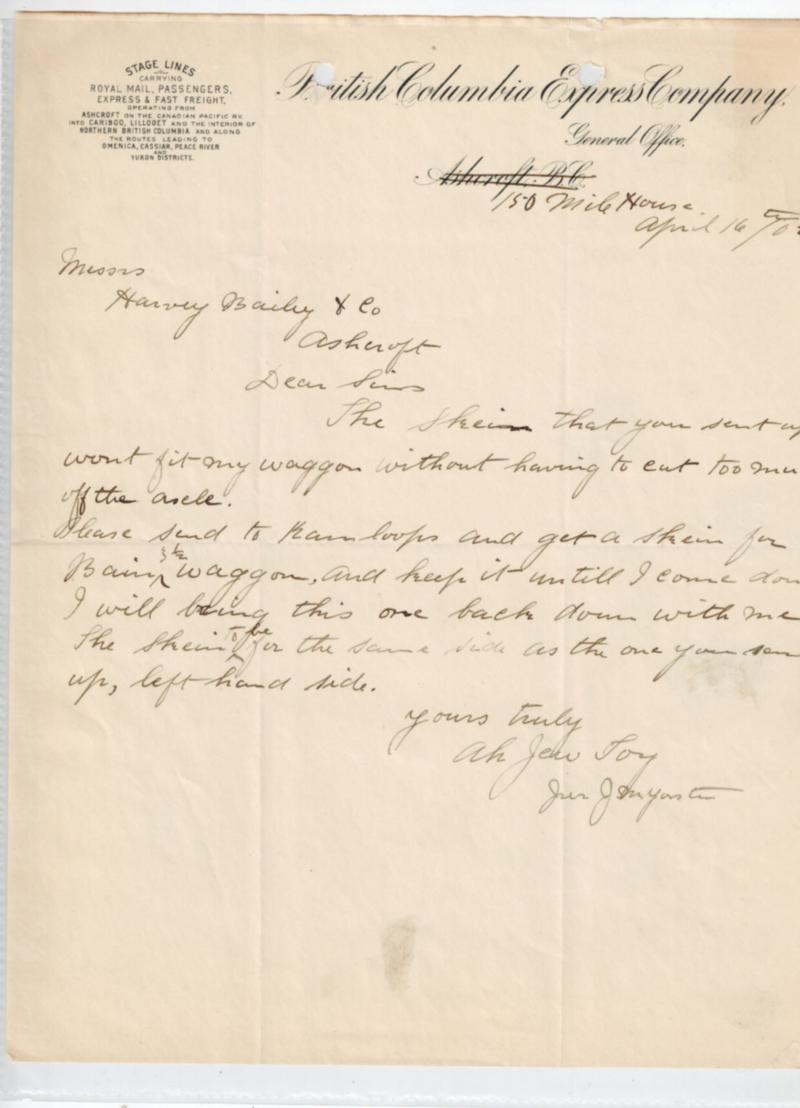 STAGE LINES
CARRYING
ROYAL MAIL, PASSENGERS,
EXPRESS & FAST FREIGHT,
OPERATING FROM
ASHCROFT ON THE CANADIAN PACIFIC RY.
INTO CARIBOO, LILLOOET AND THE INTERIOR OF
NORTHERN BRITISH COLUMBIA AND ALONG
THE ROUTES LEADING TO
OMENICA, CASSIAR, PEACE RIVER
AND
YUKON DISTRICTS.
British Columbia Express Company.
General Office.
Ashcroft, B.C.
150 Mile House.
April 16th/0
Messrs
Harvey Bailey & Co
Ashcroft
Dear Sirs
The skein that you sent up
wont fit my waggon without having to cut too mu
off the axele.
Please send to Kamloops and get a skein for
Bain 3 1/2 waggon, and keep it untill I come down
I will bring this one back down with me
The skein to be for the same side as the one you sen
up, left hand side.
yours truly
Ah Jew Toy
per J